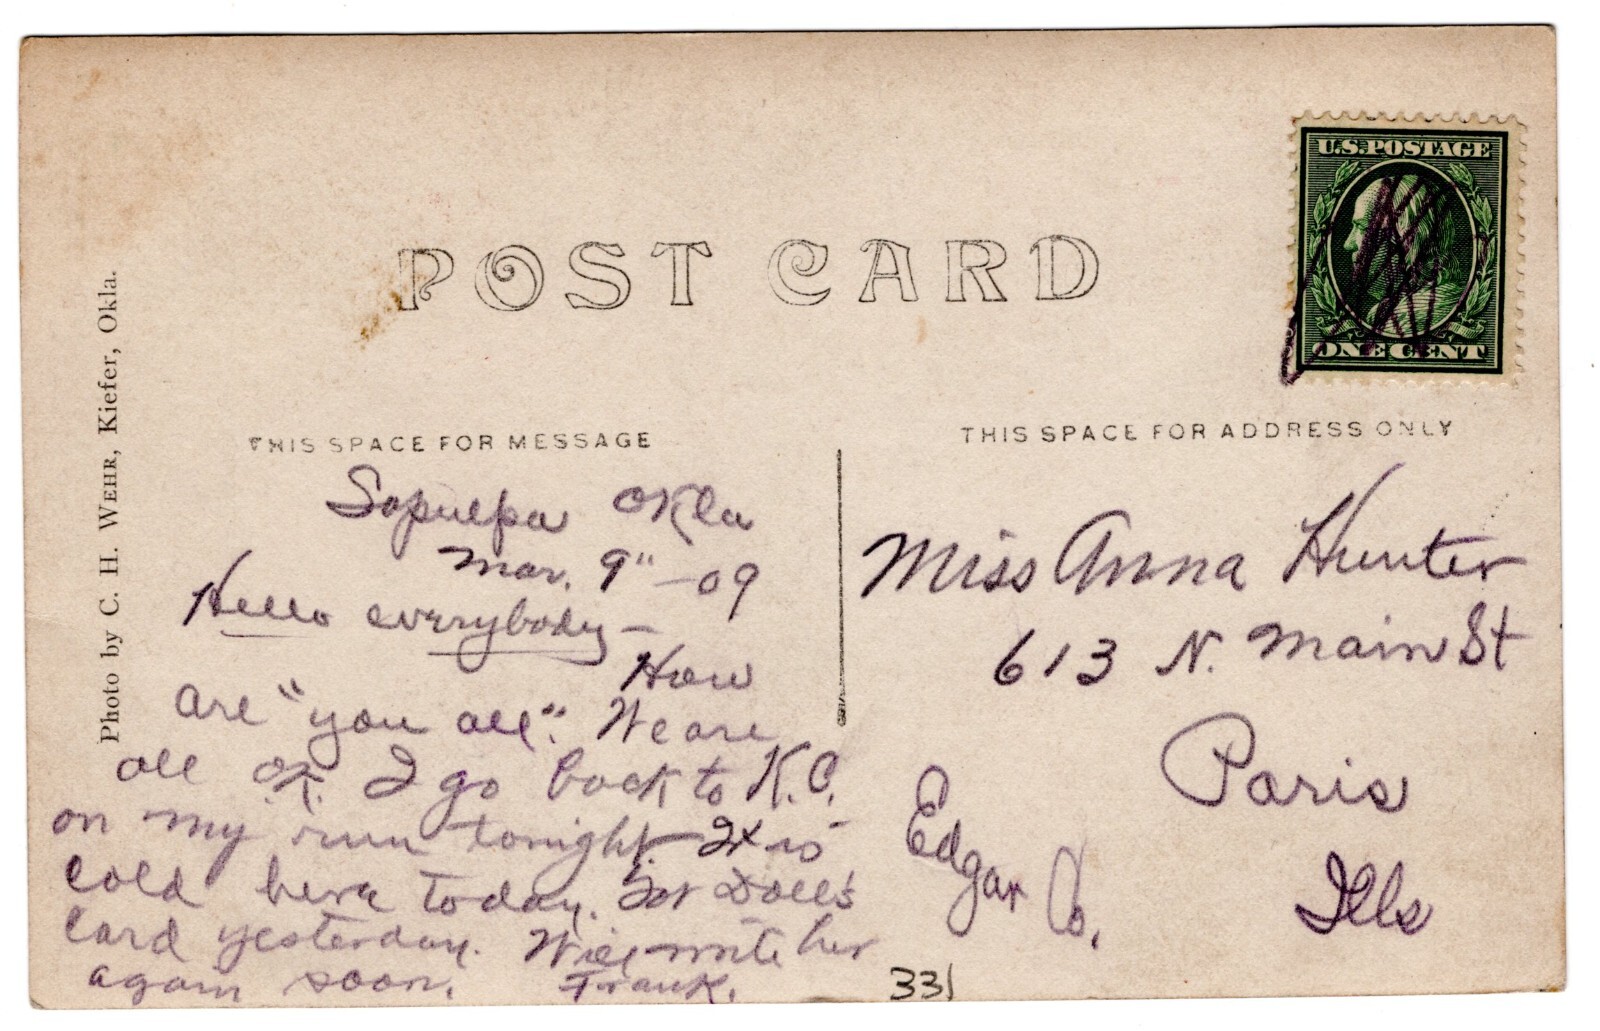 U.S. POSTAGE
ONE CENT
POST CARD
Photo by C. H. WEHR, Kiefer, Okla.
THIS SPACE FOR MESSAGE
Sapulpa Okla
Mar. 9" - 09
Hello everybody -
How
are "you all". We are
all O.K. I go back to K.C.
on my run tonight. It is
cold here today. Got Doll's
card yesterday. Will write her
again soon. Frank.
THIS SPACE FOR ADDRESS ONLY
Miss Anna Hunter
613 N. Main St
Paris
Edgar Co.
Ills
331